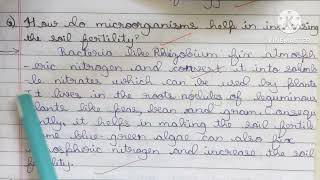 Q) How do microorganisms help in increasing
the soil fertility?
Bacteria like Rhizobium fix atmosph
-eric nitrogen and convert it into solub
-le nitrates which can be used by plants
It lives in the roots nodules of leguminous
plants like peas, bean and gram. Consequ
-ently, it helps in making the soil fertile
Some blue-green algae can also fix
atmospheric nitrogen and increase the soil
fertility.